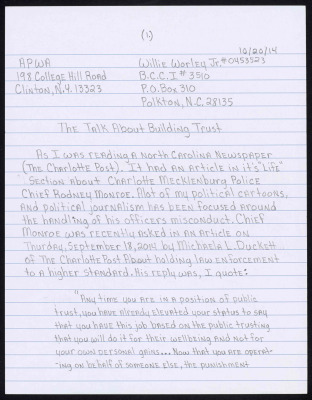 (1)
10/20/14
APWA Willie Worley Jr.#0453523
198 College Hill Road B.C.C.I# 3510
Clinton, N.Y. 13323 P.O. Box 310
Polkton, N.C. 28135
The Talk About Building Trust
As I was reading a North Carolina Newspaper
(The Charlotte Post). It had an article in it's "Life"
Section about Charlotte Mecklenburg Police
Chief Rodney Monroe. Alot of my political cartoons,
and political journalism has been focused around
the handling of his officers misconduct. Chief
Monroe was recently asked in an article on
Thurday, September 18, 2014 by Michaela L. Duckett
of The Charlotte Post About holding law enforcement
to a higher standard. His reply was, I quote:
"Any time you are in a position of public
trust, you have already elevated your status to say
that you have this job based on the public trusting
that you will do it for their wellbeing and not for
your own personal gains... Now that you are operat-
ing on behalf of someone else, the punishment